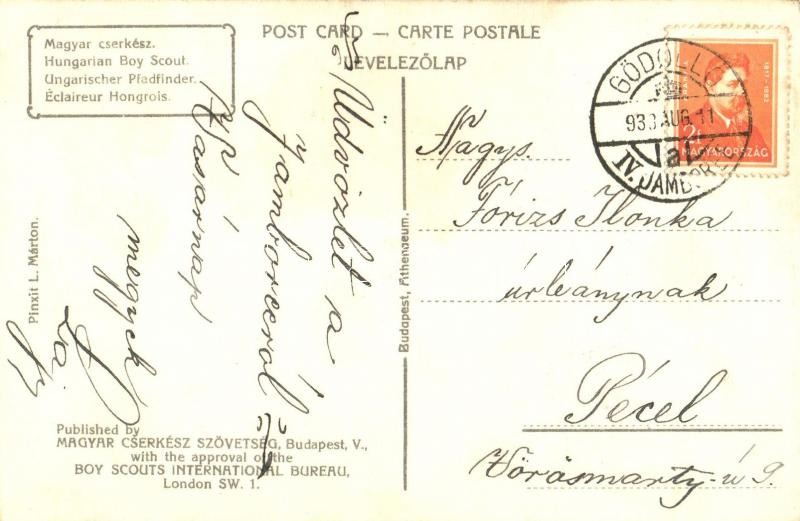 POST CARD — CARTE POSTALE
LEVELEZŐLAP
Magyar cserkész.
Hungarian Boy Scout.
Ungarischer Pfadfinder.
Éclaireur Hongrois.
Üdvözlet a
Jamboreeról
Vasárnap
megyek
Pinxit L. Márton.
Published by
MAGYAR CSERKÉSZ SZÖVETSÉG, Budapest, V.,
with the approval of the
BOY SCOUTS INTERNATIONAL BUREAU,
London SW. 1.
Budapest, Athenaeum.
GÖDÖLLŐ
933 AUG. 11
IV. JAMBOREE
1817-1882
2f
MAGYARORSZÁG
Nagys.
Fórizs Ilonka
úrleánynak
Pécel
Vörösmarty-ú 9.